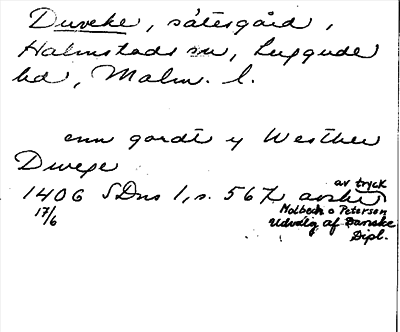 Duveke, sätesgård,
Halmstads sn, Luggude
hd, Malm. l.
enn gordt y Westher
Dwege
1406 SDns 1, s. 567 avskr
17/6
av tryck
Molbech o Petersen
Udvalg af Danske
Dipl.